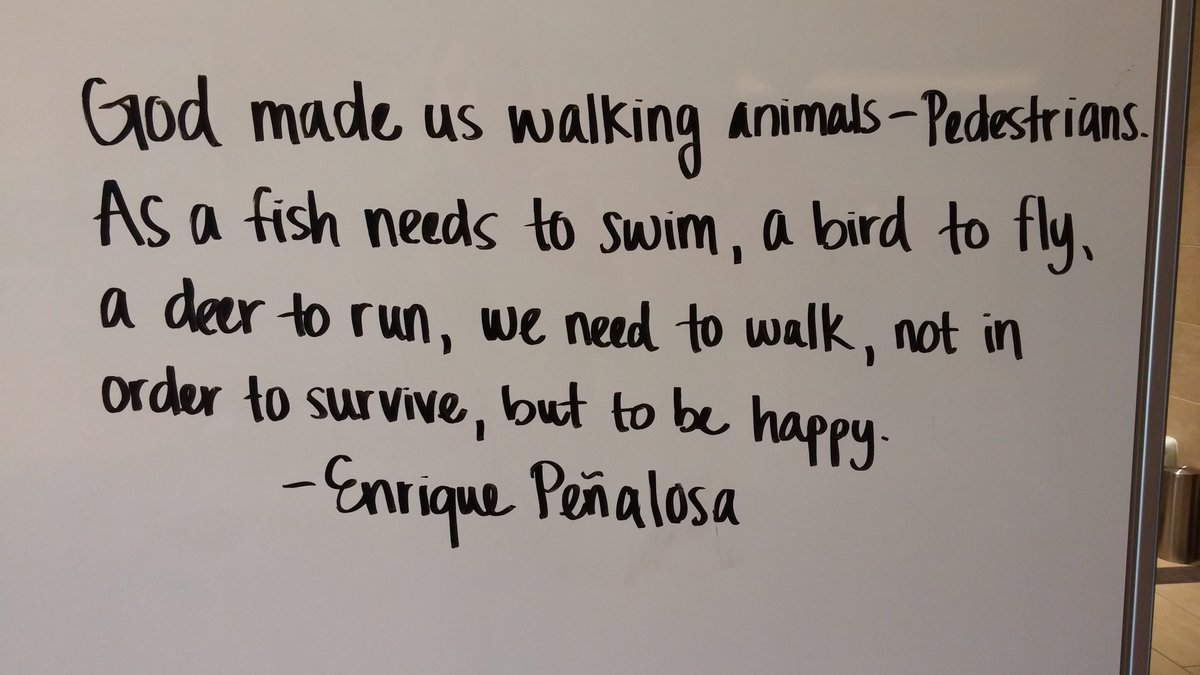 God made us walking animals - Pedestrians.
As a fish needs to swim, a bird to fly,
a deer to run, we need to walk, not in
order to survive, but to be happy.
- Enrique Peñalosa